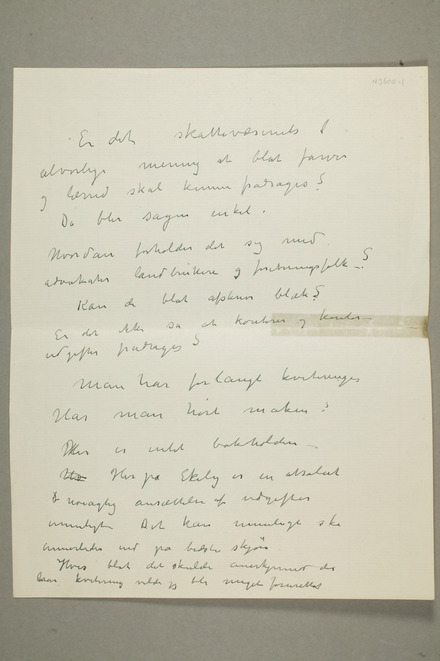 Er det skattevæsenets
alvorlige mening at blot farver
og lerred skal kunne fradrages?
Da blir sagen enkel.
Hvordan forholder det sig med
advokater landbrukere og forretningsfolk –?
Kan de blot afskrive blæk?
Er det ikke så at kontorer og kontor-
udgifter fradrages?
Man har forlangt kvitteringer
Har man hørt maken?
Her er intet bokholderi –
Her på Ekely er en absolut
nøiagtig ansættelse af udgifter
umuligt. Det kan umuligt ske
annerledes end på bedste skjøn
Hvis blot det skulde anerkjennes der
kvittering vilde jeg bli meget forurettet